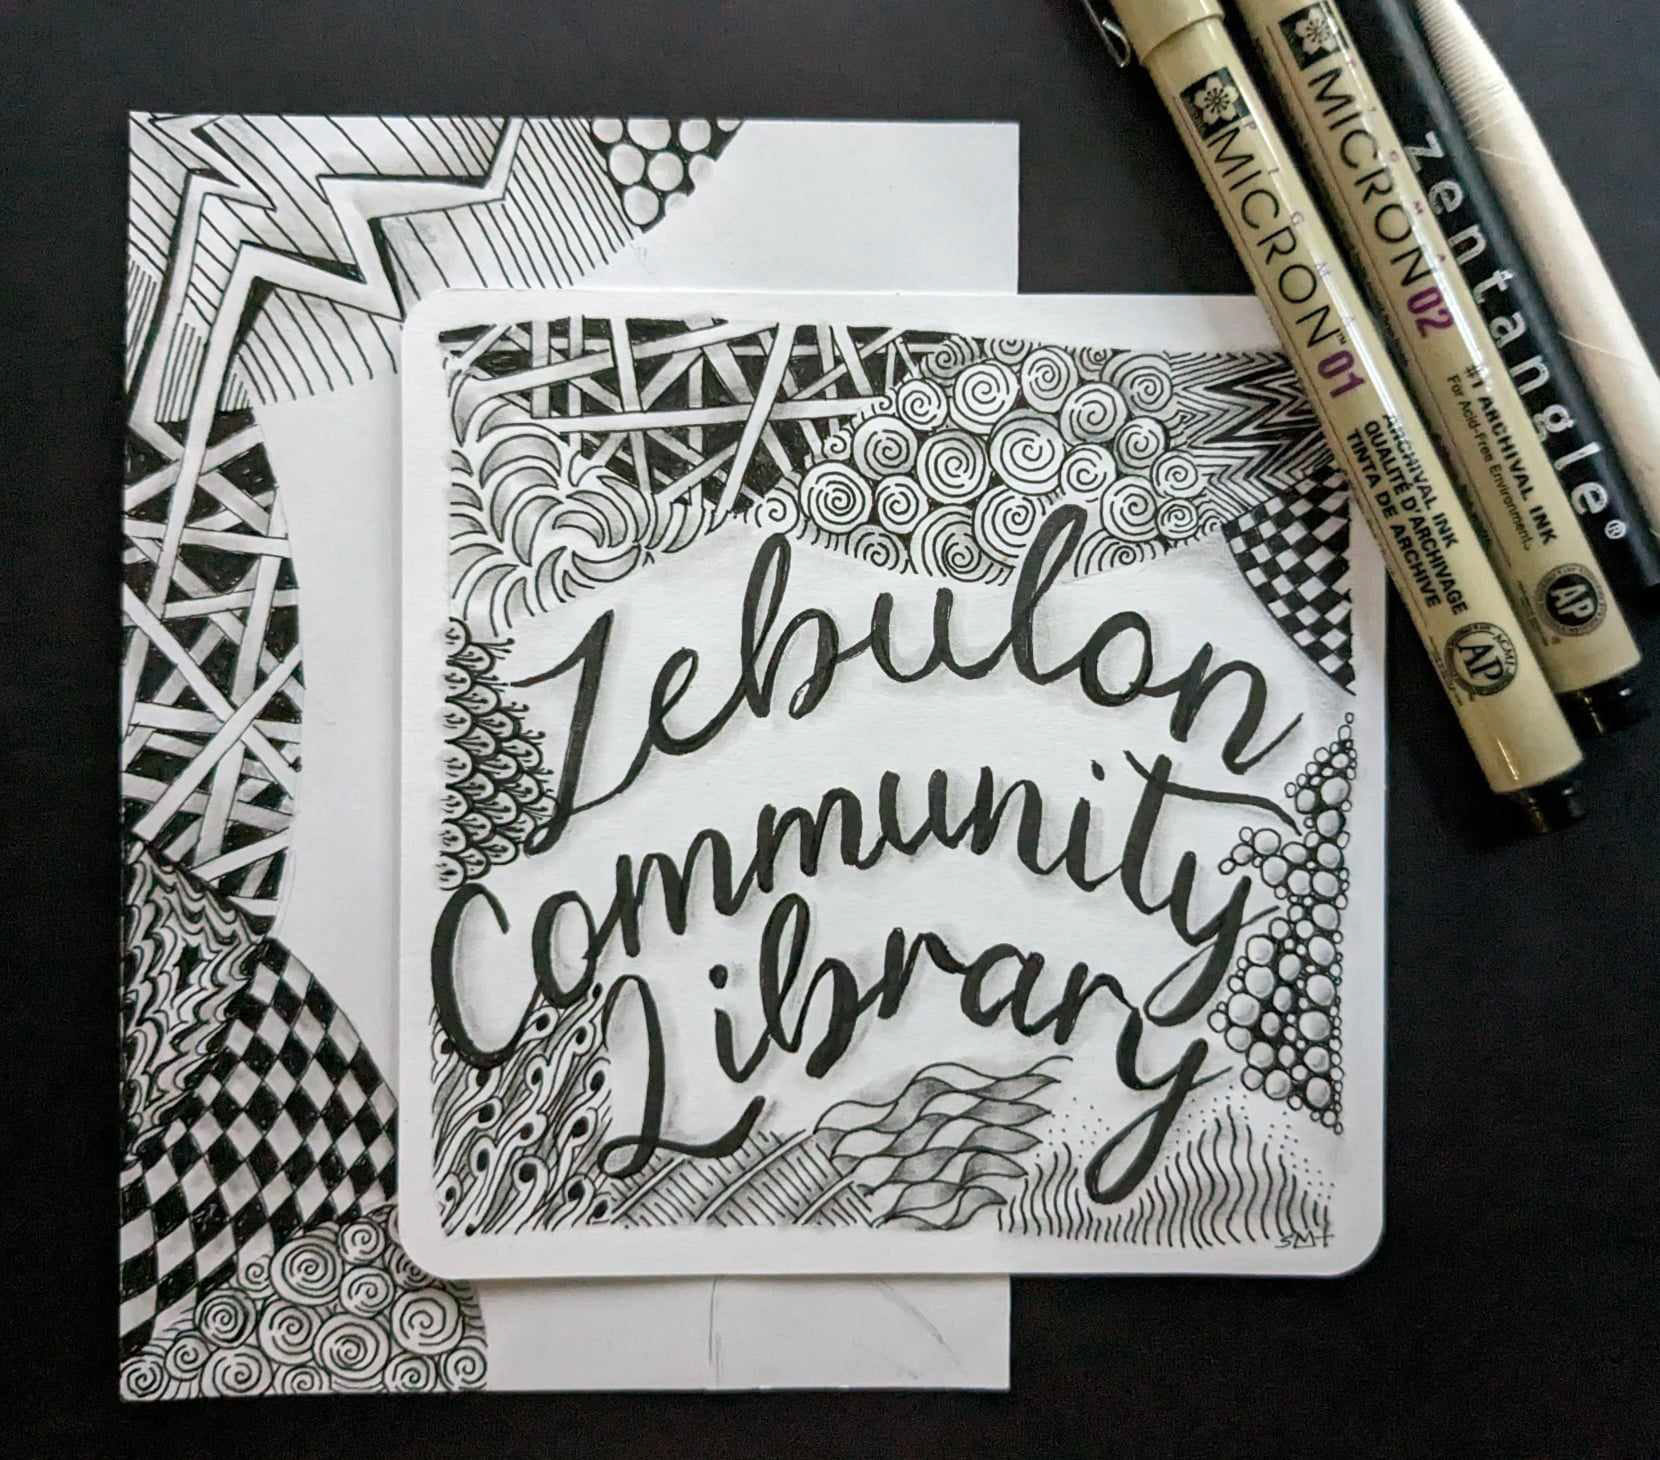 Zebulon
Community
Library
SMT
MICRON™ 01
ARCHIVAL INK
QUALITÉ D'ARCHIVAGE
TINTA DE ARCHIVE
AP
ACMI
MICRON 02
#1 ARCHIVAL INK
For Acid-Free Environments
AP
zentangle®